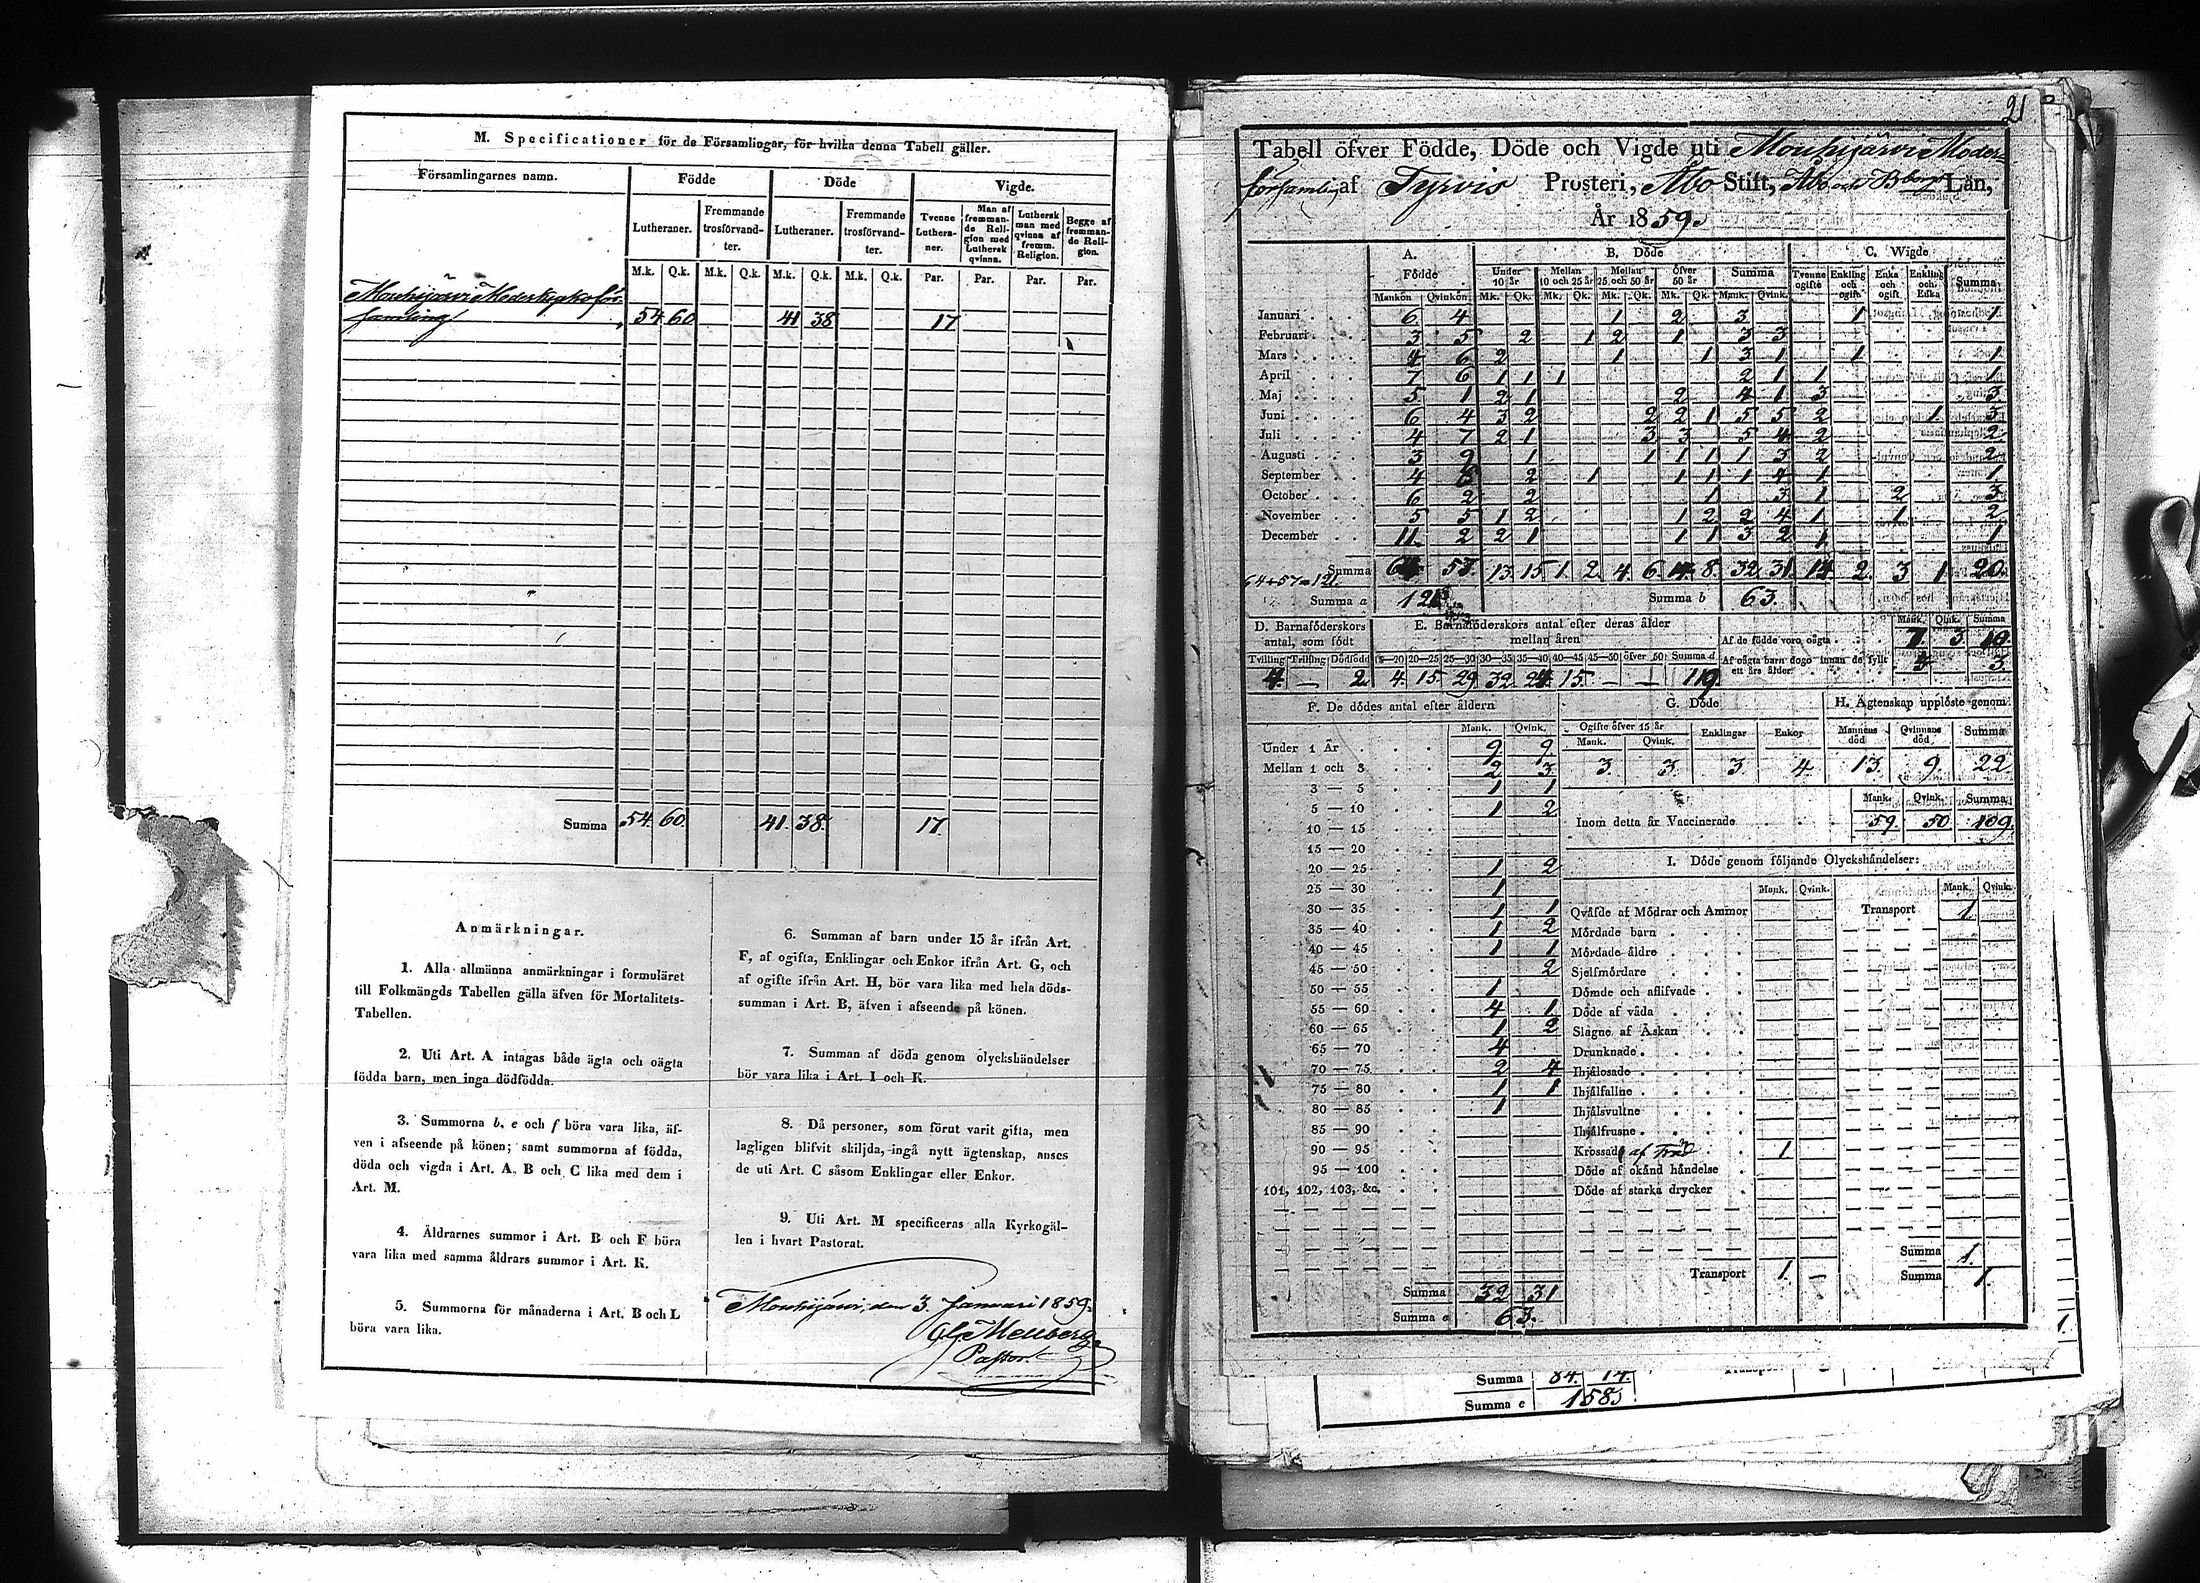 M. Specificationer för de Församlingar, för hvilka denna Tabell gäller.
Församlingarnes namn. Födde Döde Vigde.
Lutheraner. Fremmande trosförvandter. Lutheraner. Fremmande trosförvandter. Tvenne Lutheraner. Man af fremmande Religion med Luthersk qvinna. Luthersk man med qvinna af fremm. Religion. Begge af fremmande Religion.
M.k. Q.k. M.k. Q.k. M.k. Q.k. M.k. Q.k. Par. Par. Par. Par.
Mouhijärvi Moderkyrkoför-
samling 54 60 41 38 17
Summa 54. 60. 41. 38. 17.
Anmärkningar.
1. Alla allmänna anmärkningar i formuläret
till Folkmängds Tabellen gälla äfven för Mortalitets-
Tabellen.
2. Uti Art. A intagas både ägta och oägta
födda barn, men inga dödfödda.
3. Summorna b, e och f böra vara lika, äf-
ven i afseende på könen; samt summorna af födda,
döda och vigda i Art. A, B och C lika med dem i
Art. M.
4. Åldrarnes summor i Art. B och F böra
vara lika med samma åldrars summor i Art. K.
5. Summorna för månaderna i Art. B och L
böra vara lika.
6. Summan af barn under 15 år ifrån Art.
F, af ogifta, Enklingar och Enkor ifrån Art. G, och
af ogifte ifrån Art. H, bör vara lika med hela döds-
summan i Art. B, äfven i afseende på könen.
7. Summan af döda genom olyckshändelser
bör vara lika i Art. I och K.
8. Då personer, som förut varit gifta, men
lagligen blifvit skiljda, ingå nytt ägtenskap, anses
de uti Art. C såsom Enklingar eller Enkor.
9. Uti Art. M specificeras alla Kyrkogäl-
len i hvart Pastorat.
Mouhijärvi, den 3. Januari 1859.
Mellberg
Pastor.
21
Tabell öfver Födde, Döde och Vigde uti Mouhijärvi Moder-
församling af Tyrvis Prosteri, Åbo Stift, Åbo och Bborgs Län,
År 1859.
A. Födde B. Döde C. Wigde
Under 10 år Mellan 10 och 25 år Mellan 25 och 50 år Öfver 50 år Summa Tvenne ogifte Enkling och ogift. Enka och ogift. Enkling och Enka Summa
Mankön Qvinkön Mk. Qk. Mk. Qk. Mk. Qk. Mk. Qk. Mank. Qvink.
Januari 6 4 1 2 3 1 1
Februari 3 5 2 1 2 1 3 3
Mars 4 6 2 1 1 3 1 1 1
April 7 6 1 1 1 2 1 1 1
Maj 5 1 2 1 2 4 1 3 3
Juni 6 4 3 2 2 2 1 5 5 2 1 3
Juli 4 7 2 1 3 3 5 4 2 2
Augusti 3 9 1 1 1 1 1 3 2 2
September 4 6 2 1 1 1 1 4 1 1
October 6 2 2 1 3 1 2 3
November 5 5 1 2 1 2 2 4 1 1 2
December 11 2 2 1 1 1 3 2 1 1
Summa 64 57. 13. 15 1. 2. 4. 6. 14. 8. 32. 31. 14. 2. 3. 1. 20.
64+57=121.
Summa a 121 Summa b 63.
D. Barnaföderskors antal, som födt E. Barnaföderskors antal efter deras ålder mellan åren
Tvilling Trilling Dödfödd 15—20 20—25 25—30 30—35 35—40 40—45 45—50 öfver 50 Summa d
4. — 2. 4. 15. 29. 32. 24. 15. — — 119.
Mank. Qink. Summa
Af de födde voro oägta 7. 3 10.
Af oägta barn dogo innan de fyllt ett års ålder 3.
F. De dödes antal efter åldern G. Döde H. Ägtenskap upplöste genom:
Mank. Qvink. Ogifte öfver 15 år Mank. Qvink. Enklingar Enkor Mannens död Qvinnans död Summa
3. 3. 3 4. 13. 9. 22.
Under 1 År 9 9
Mellan 1 och 3 2 3
3 — 5 1 1
5 — 10 1 2
10 — 15
15 — 20
20 — 25 1 2
25 — 30 1
30 — 35 1 1
35 — 40 1 2
40 — 45 1 1
45 — 50 2
50 — 55 1
55 — 60 4 1
60 — 65 1 2
65 — 70 4
70 — 75 2 4
75 — 80 1 1
80 — 85 1
85 — 90
90 — 95
95 — 100
101, 102, 103, &c.
Summa 32 31
Summa e 63.
Mank. Qvink. Summa
Inom detta år Vaccinerade 59. 50 109.
I. Döde genom följande Olyckshändelser:
Mank. Qvink. Mank. Qvink.
Qväfde af Mödrar och Ammor Transport 1.
Mördade barn
Mördade äldre
Sjelfmördare
Dömde och aflifvade
Döde af våda
Slagne af Åskan
Drunknade
Ihjälosade
Ihjälfallne
Ihjälsvultne
Ihjälfrusne
Krossade af träd 1
Döde af okänd händelse
Döde af starka drycker
Summa 1.
Transport 1. — Summa 1.
Summa 84. 74.
Summa e 158.